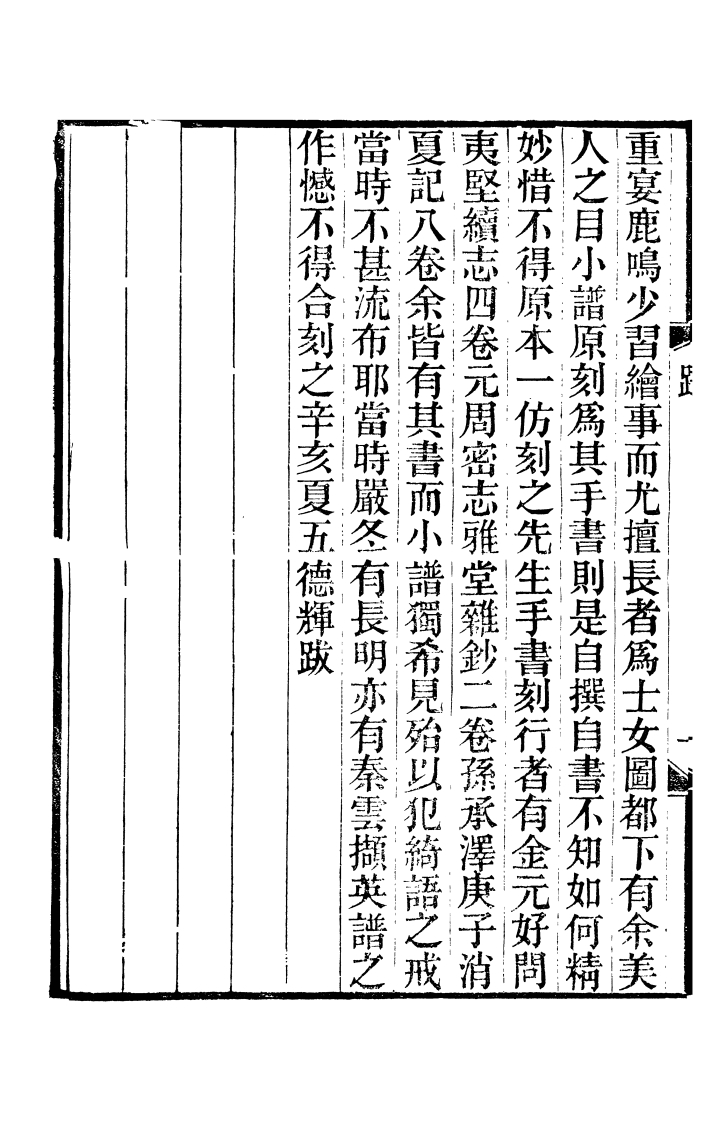 跋
一
重宴鹿鳴少習繪事而尤擅長者爲士女圖都下有余美
人之目小譜原刻爲其手書則是自撰自書不知如何精
妙惜不得原本一仿刻之先生手書刻行者有金元好問
夷堅續志四卷元周密志雅堂雜鈔二卷孫承澤庚子消
夏記八卷余皆有其書而小譜獨希見殆以犯綺語之戒
當時不甚流布耶當時嚴冬有長明亦有秦雲擷英譜之
作憾不得合刻之辛亥夏五德輝跋